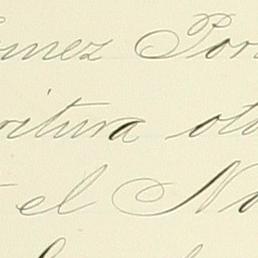 ómez Por
ritura oto
el No